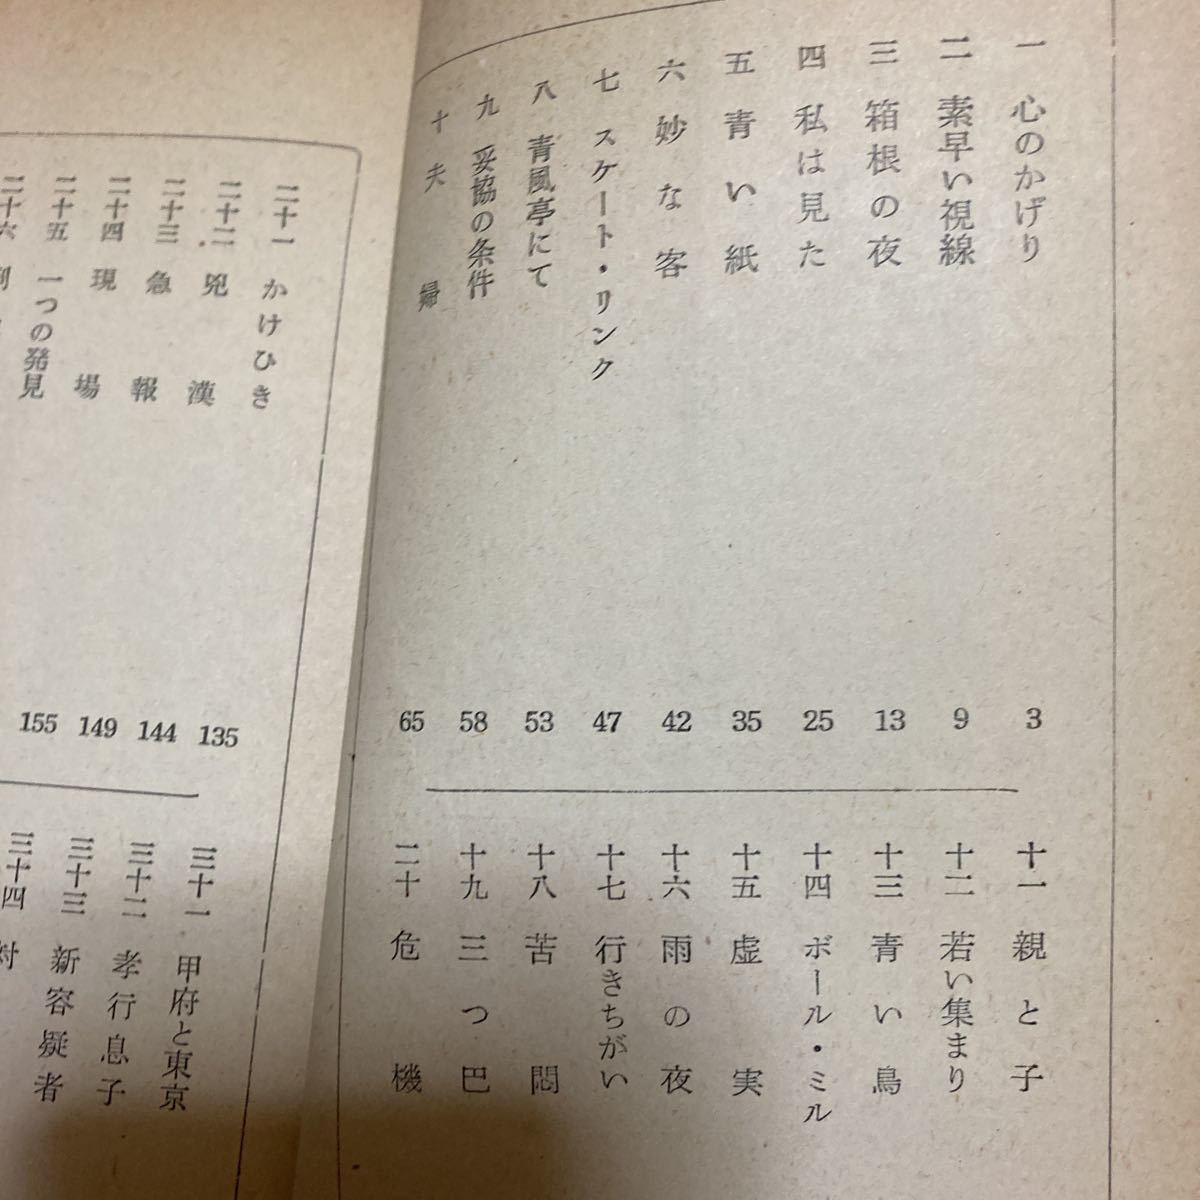 一 心のかげり 3
二 素早い視線 9
三 箱根の夜 13
四 私は見た 25
五 青い紙 35
六 妙な客 42
七 スケート・リンク 47
八 青風亭にて 53
九 妥協の条件 58
十 夫婦 65
十一 親と子
十二 若い集まり
十三 青い鳥
十四 ボール・ミル
十五 虚実
十六 雨の夜
十七 行きちがい
十八 苦悶
十九 三つ巴
二十 危機
二十一 かけひき 135
二十二 兇漢 144
二十三 急報 149
二十四 現場 155
二十五 一つの発見
二十六
三十一 甲府と東京
三十二 孝行息子
三十三 新容疑者
三十四 対